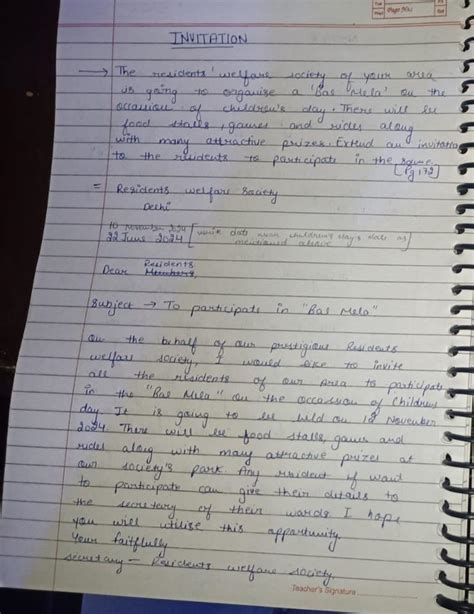 Page No.
INVITATION
→ The residents' welfare society of your area
is going to organise a 'Bal Mela' on the
occasion of children's day. There will be
food stalls, games and rides along
with many attractive prizes. Extend an invitation
to the residents to participate in the same.
[Pg 172]
= Residents welfare society
Delhi
10 November 2024
22 June 2024 [write date near children's day's date as
mentioned above
Residents
Dear Members,
Subject → To participate in "Bal Mela"
On the behalf of our prestigious Residents
welfare society, I would like to invite
all the residents of our area to participate
in the "Bal Mela" on the occasion of Children's
day. It is going to be held on November
2024. There will be food stalls, games and
rides along with many attractive prizes at
our society's park. Any resident if want
to participate can give their details to
the secretary of their wards I hope
you will utilise this opportunity.
Your faithfully
Secretary - Residents welfare society.
Teacher's Signature